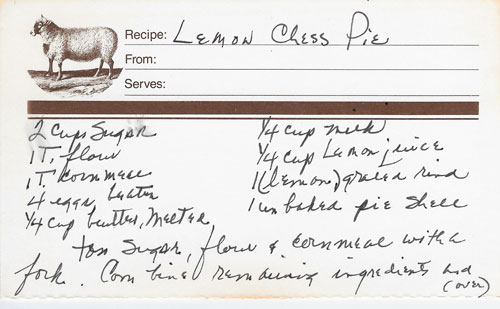 Recipe: Lemon Chess Pie
From:
Serves:
2 cups sugar
1 T. flour
1 T. cornmeal
4 eggs, beaten
1/4 cup butter, melted
1/4 cup milk
1/4 cup lemon juice
1 (lemon) grated rind
1 unbaked pie shell
Toss sugar, flour & cornmeal with a
fork. Combine remaining ingredients and
(over)